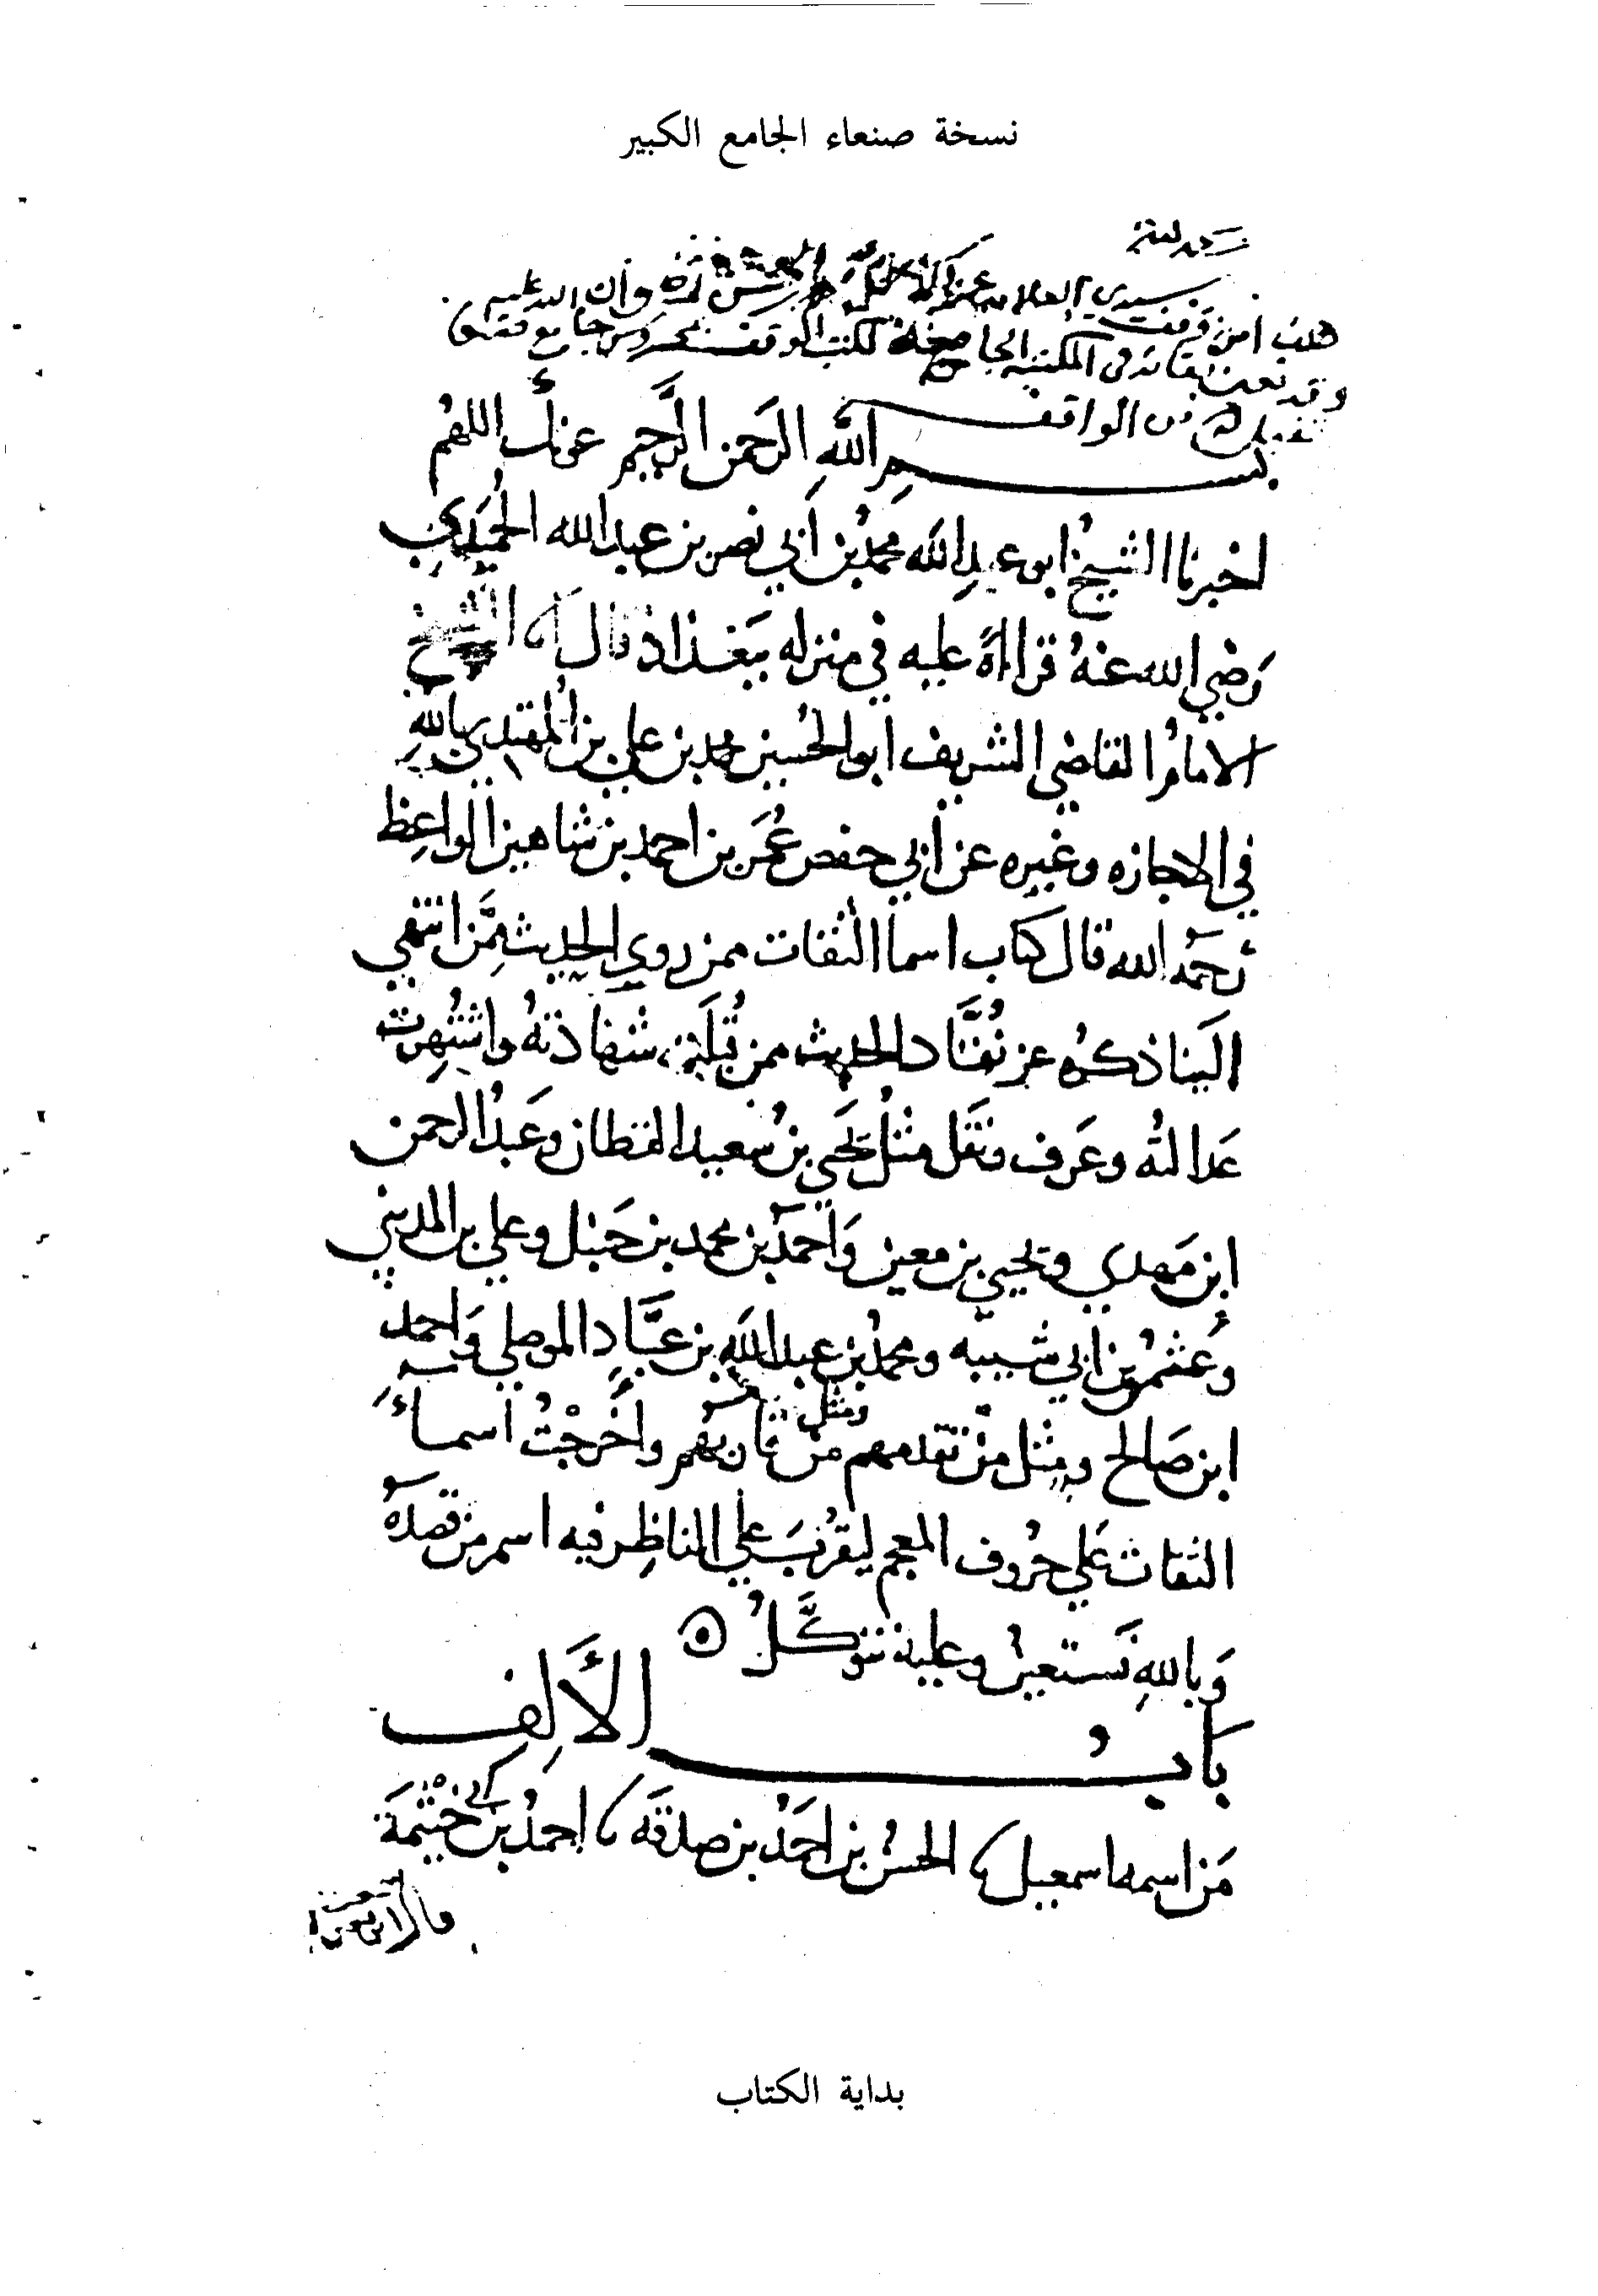 نسخة صنعاء الجامع الكبير
الحمد لله
سيدي العلامه وان الله عليه
هذه من وقف
وقد تعين بقائه في المكتبه الجامعة لكتب الوقف بمحروس جامع صنعاء
من الواقف
بسم الله الرحمن الرحيم عونك اللهم
اخبرنا الشيخ ابو عبد الله محمد بن أبي نصر بن عبد الله الحُمَيدي
رَضي الله عنهُ قراءةً عليه في منزله ببَغداذ قال نا الشيخ
الامامُ القاضي الشريف ابو الحُسين محمد بن علي بن المُهتدي بالله
في الاجازه وغيره عن أبي حفص عُمَر بن احمد بن شاهين الواعِظ
رَحمَه الله قال كتاب اسما الثقات ممن روي الحديث مِمَّن انتهي
الَينا ذكرُه عن نُقَّاد الحديث ممن قُبلَت شهادتهُ واشتُهرت
عَدالتُه وعَرف ونَقَل مثلُ يَحيى بنُ سَعيد القطان وعَبدُ الرحمن
ابن مَهدي ويَحيي بن معين وَاَحمَدُ بن محمد بن حَنبل وعلي بن المديني
وعُثمٰنُ بن ابي شيبه ومحمدُ بن عبد الله بن عَمَّارٍ الموصلي وَاحمد
ومثل
ابن صَالح ومِثل مَن تقدمهم من قاربهم وأَخرجْتُ أسماءَ
الثقات عَلي حُروف المعجم ليَقرُبَ علي الناظِر فيه اسم من قصدَهُ
وَبالله نَستعينُ وعليه نتوكَّلُ
بَابُ الأَلِف
مَن اسمه اسمعيل نا الحسنُ بن احمَدُ بن صدقَه نا احمدُ بن ابي خَيْثَمَة
قال
بداية الكتاب